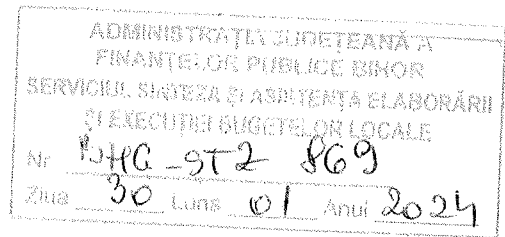 ADMINISTRAȚIA JUDEȚEANĂ A
FINANȚELOR PUBLICE BIHOR
SERVICIUL SINTEZA ȘI ASISTENȚA ELABORĂRII
ȘI EXECUȚIEI BUGETELOR LOCALE
Nr -ST2 869
Ziua 30 Luna 01 Anul 2024